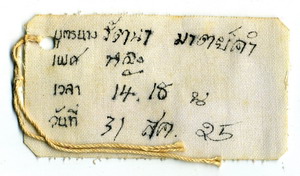 บุตรนาง รัตนา มาตย์คำ
เพศ หญิง
เวลา 14.18 น
วันที่ 31 สค. 25